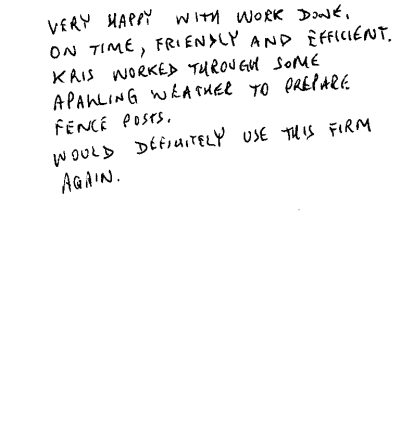 VERY HAPPY WITH WORK DONE.
ON TIME, FRIENDLY AND EFFICIENT.
KRIS WORKED THROUGH SOME
APAWLING WEATHER TO PREPARE
FENCE POSTS.
WOULD DEFINITELY USE THIS FIRM
AGAIN.